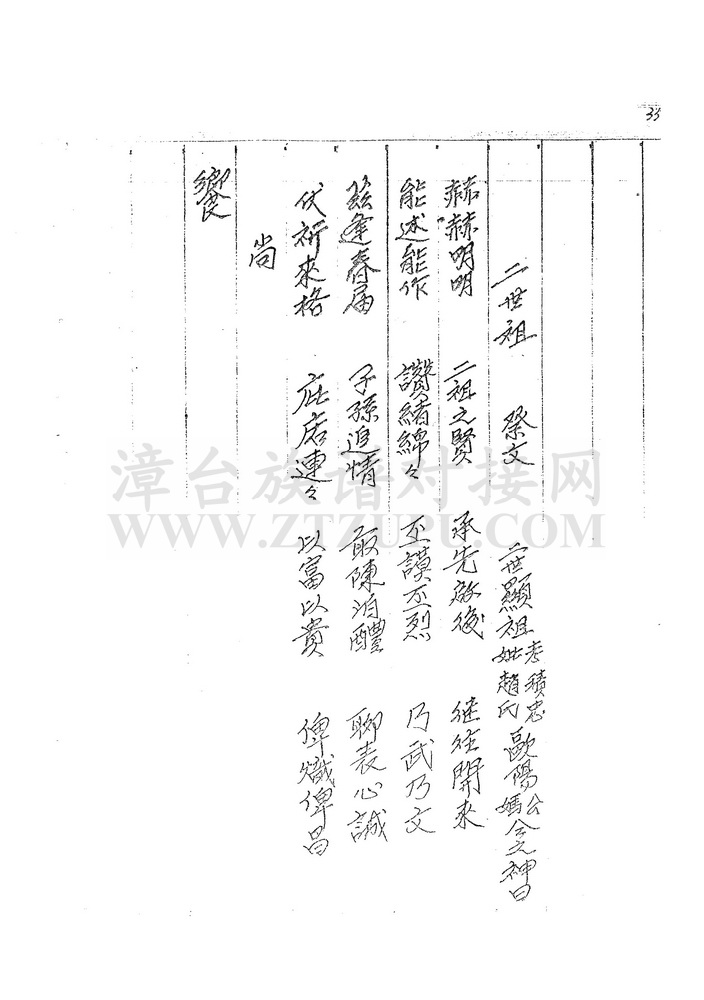 33
二世祖 祭文 二世顯祖考積忠妣趙氏歐陽公媽仝之神曰
赫赫明明 二祖之賢 承先啟後 继往開來
能述能作 讚緒綿々 丕謨丕烈 乃武乃文
兹逢春届 子孫追情 敢陳泊醴 聊表心誠
伏祈來格 庇居連々 以富以貴 俾熾俾昌
尚
饗
漳台族谱对接网
WWW.ZTZUPU.COM